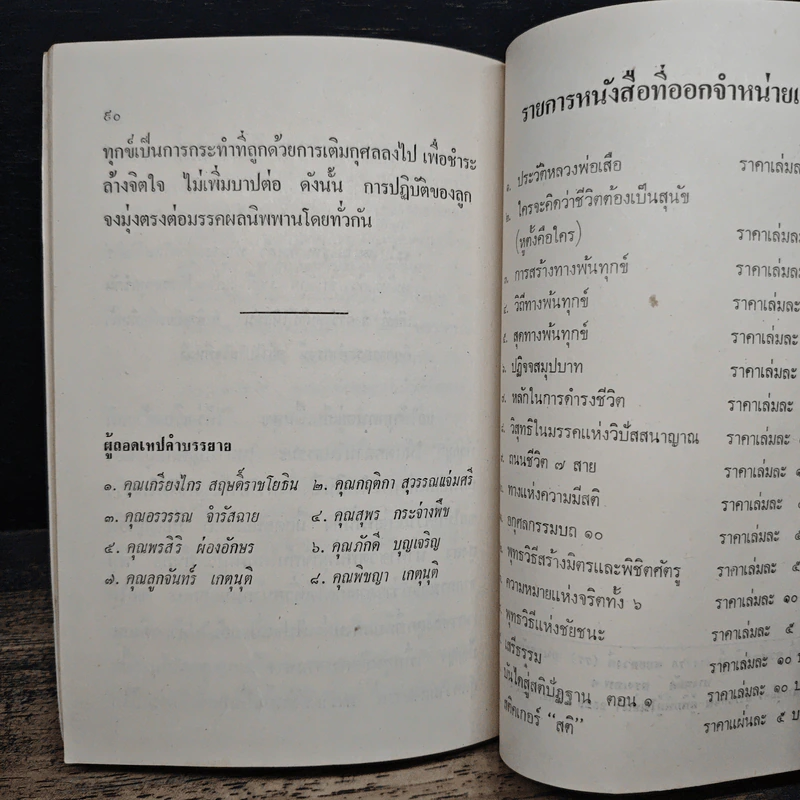 ๕๐
ทุกข์เป็นการกระทำที่ถูกด้วยการเติมกุศลลงไป เพื่อชำระ
ล้างจิตใจ ไม่เพิ่มบาปต่อ ดังนั้น การปฏิบัติของลูก
จงมุ่งตรงต่อมรรคผลนิพพานโดยทั่วกัน
ผู้ถอดเทปคำบรรยาย
๑. คุณเกรียงไกร สฤษดิ์ราชโยธิน ๒. คุณกฤติกา สุวรรณแจ่มศรี
๓. คุณอรวรรณ จำรัสฉาย ๔. คุณสุพร กระจ่างพืช
๕. คุณพรสิริ ผ่องอักษร ๖. คุณภักดี บุญเจริญ
๗. คุณลูกจันทร์ เกตุนุติ ๘. คุณพิชญา เกตุนุติ
รายการหนังสือที่ออกจำหน่าย
ประวัติหลวงพ่อเสือ ราคาเล่มละ
ใครจะคิดว่าชีวิตต้องเป็นสุนัข
(หูตั้งคือใคร) ราคาเล่มละ
การสร้างทางพ้นทุกข์ ราคาเล่มละ
วิถีทางพ้นทุกข์ ราคาเล่มละ
สุดทางพ้นทุกข์ ราคาเล่มละ
ปฏิจจสมุปบาท ราคาเล่มละ
หลักในการดำรงชีวิต ราคาเล่มละ
วิสุทธิในมรรคแห่งวิปัสสนาญาณ ราคาเล่มละ
ถนนชีวิต ๗ สาย ราคาเล่มละ
ทางแห่งความมีสติ ราคาเล่มละ
อกุศลกรรมบถ ๑๐ ราคาเล่มละ
พุทธวิธีสร้างมิตรและพิชิตศัตรู ราคาเล่มละ ๕
ความหมายแห่งจริตทั้ง ๖ ราคาเล่มละ ๑๐
พุทธวิธีแห่งชัยชนะ ราคาเล่มละ ๕
เสรีธรรม ราคาเล่มละ ๑๐
บันไดสู่สติปัฏฐาน ตอน ๑ ราคาเล่มละ ๑๐ บ
สติคเกอร์ "สติ" ราคาแผ่นละ ๕ บา